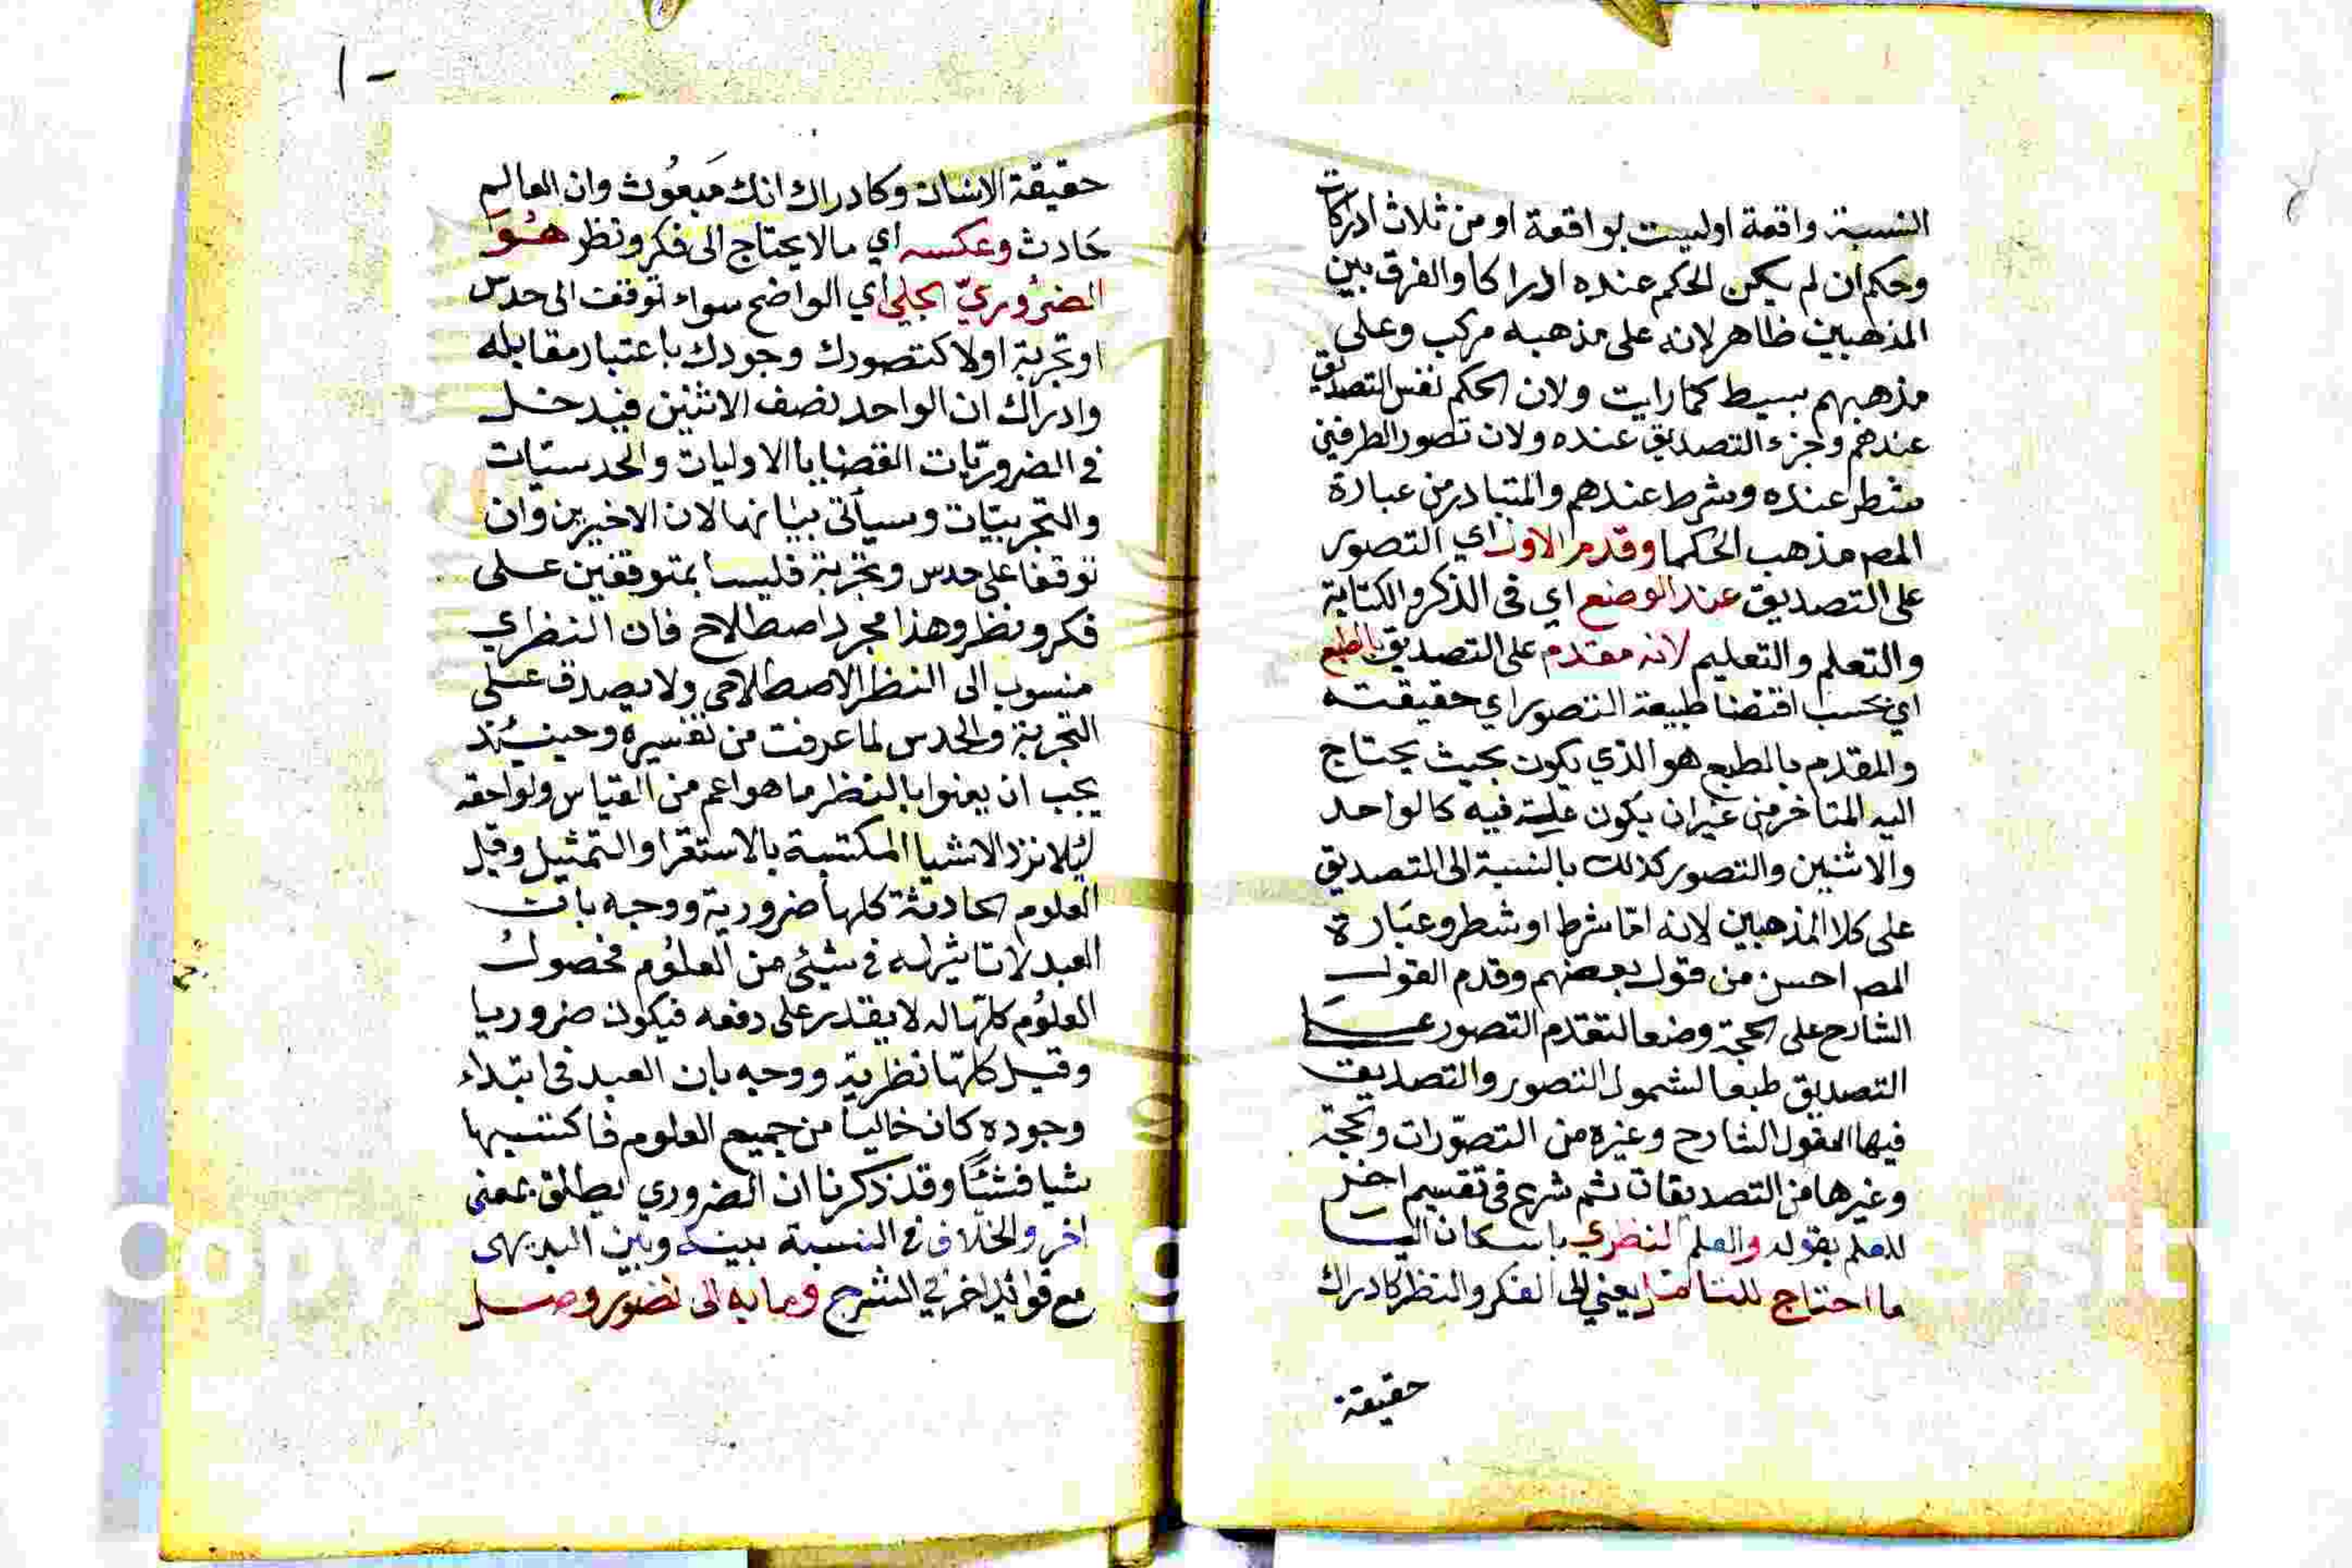 النسبة واقعة او ليست بواقعة او من ثلاث ادراكات
وحكم ان لم يكن الحكم عنده ادراكا والفرق بين
المذهبين ظاهر لانه على مذهبه مركب وعلى
مذهبهم بسيط كما رايت ولان الحكم نفس التصديق
عندهم وجزء التصديق عنده ولان تصور الطرفين
شطر عنده وشرط عندهم والمتبادر من عبارة
المص مذهب الحكما وقدم الاول اي التصور
على التصديق عند الوضع اي في الذكر والكتابة
والتعلم والتعليم لانه مقدم على التصديق بالطبع
اي بحسب اقتضا طبيعة التصور اي حقيقته
والمقدم بالطبع هو الذي يكون بحيث يحتاج
اليه المتاخر من غير ان يكون علة فيه كالواحد
والاثنين والتصور كذلك بالنسبة الى التصديق
على كلا المذهبين لانه اما شرط او شطر وعبارة
المص احسن من قول بعضهم وقدم القول
الشارح على الحجة وضعا لتقدم التصور على
التصديق طبعا لشمول التصور والتصديق
فيها القول الشارح وغيره من التصورات والحجة
وغيرها من التصديقات ثم شرع في تقسيم اخر
للعلم بقوله والعلم النظري باسكان اليا
ما احتاج للتامل يعني الى الفكر والنظر كادراك
حقيقة
١٠
حقيقة الانسان وكادراك انك مَبعُوث وان العالم
حَادث وعكسه اي ما لا يحتاج الى فكر ونظر هُوَ
الضرُوريّ الجلي اي الواضح سواء توقفت الى حدس
او تجربة اولا كتصورك وجودك باعتبار مقابله
وادراك ان الواحد نصف الاثنين فيدخل
في الضروريّات القضايا الاوليات والحدسيّات
والتجربيّات وسيأتي بيانها لان الاخيرين وان
توقفا على حدس وتجربة فليسا بمتوقفين على
فكر ونظر وهذا مجرد اصطلاح فان النظري
منسوب الى النظر الاصطلاحي ولا يصدق على
التجربة والحدس لما عرفت من تفسيره وحينئذ
يجب ان يعنوا بالنظر ما هو اعم من القياس ولواحقه
ليلا نزد الاشيا المكتسبة بالاستقرا والتمثيل وقيل
العلوم الحادثة كلها ضرورية ووجه بان
العبد لا تاثير له في شيئ من العلوم فحصول
العلُوم كلّها له لا يقدر على دفعه فيكون ضروريا
وقيل كلّها نظرية ووجه بان العبد في ابتداء
وجوده كان خاليًا من جميع العلوم فاكتسبها
شيا فشيًا وقد ذكرنا ان الضروري يطلق بمعنى
اخر والخلاف في النسبة بينه وبين البديهى
مع فوائد اخر في الشرح وما به الى تصور وصل